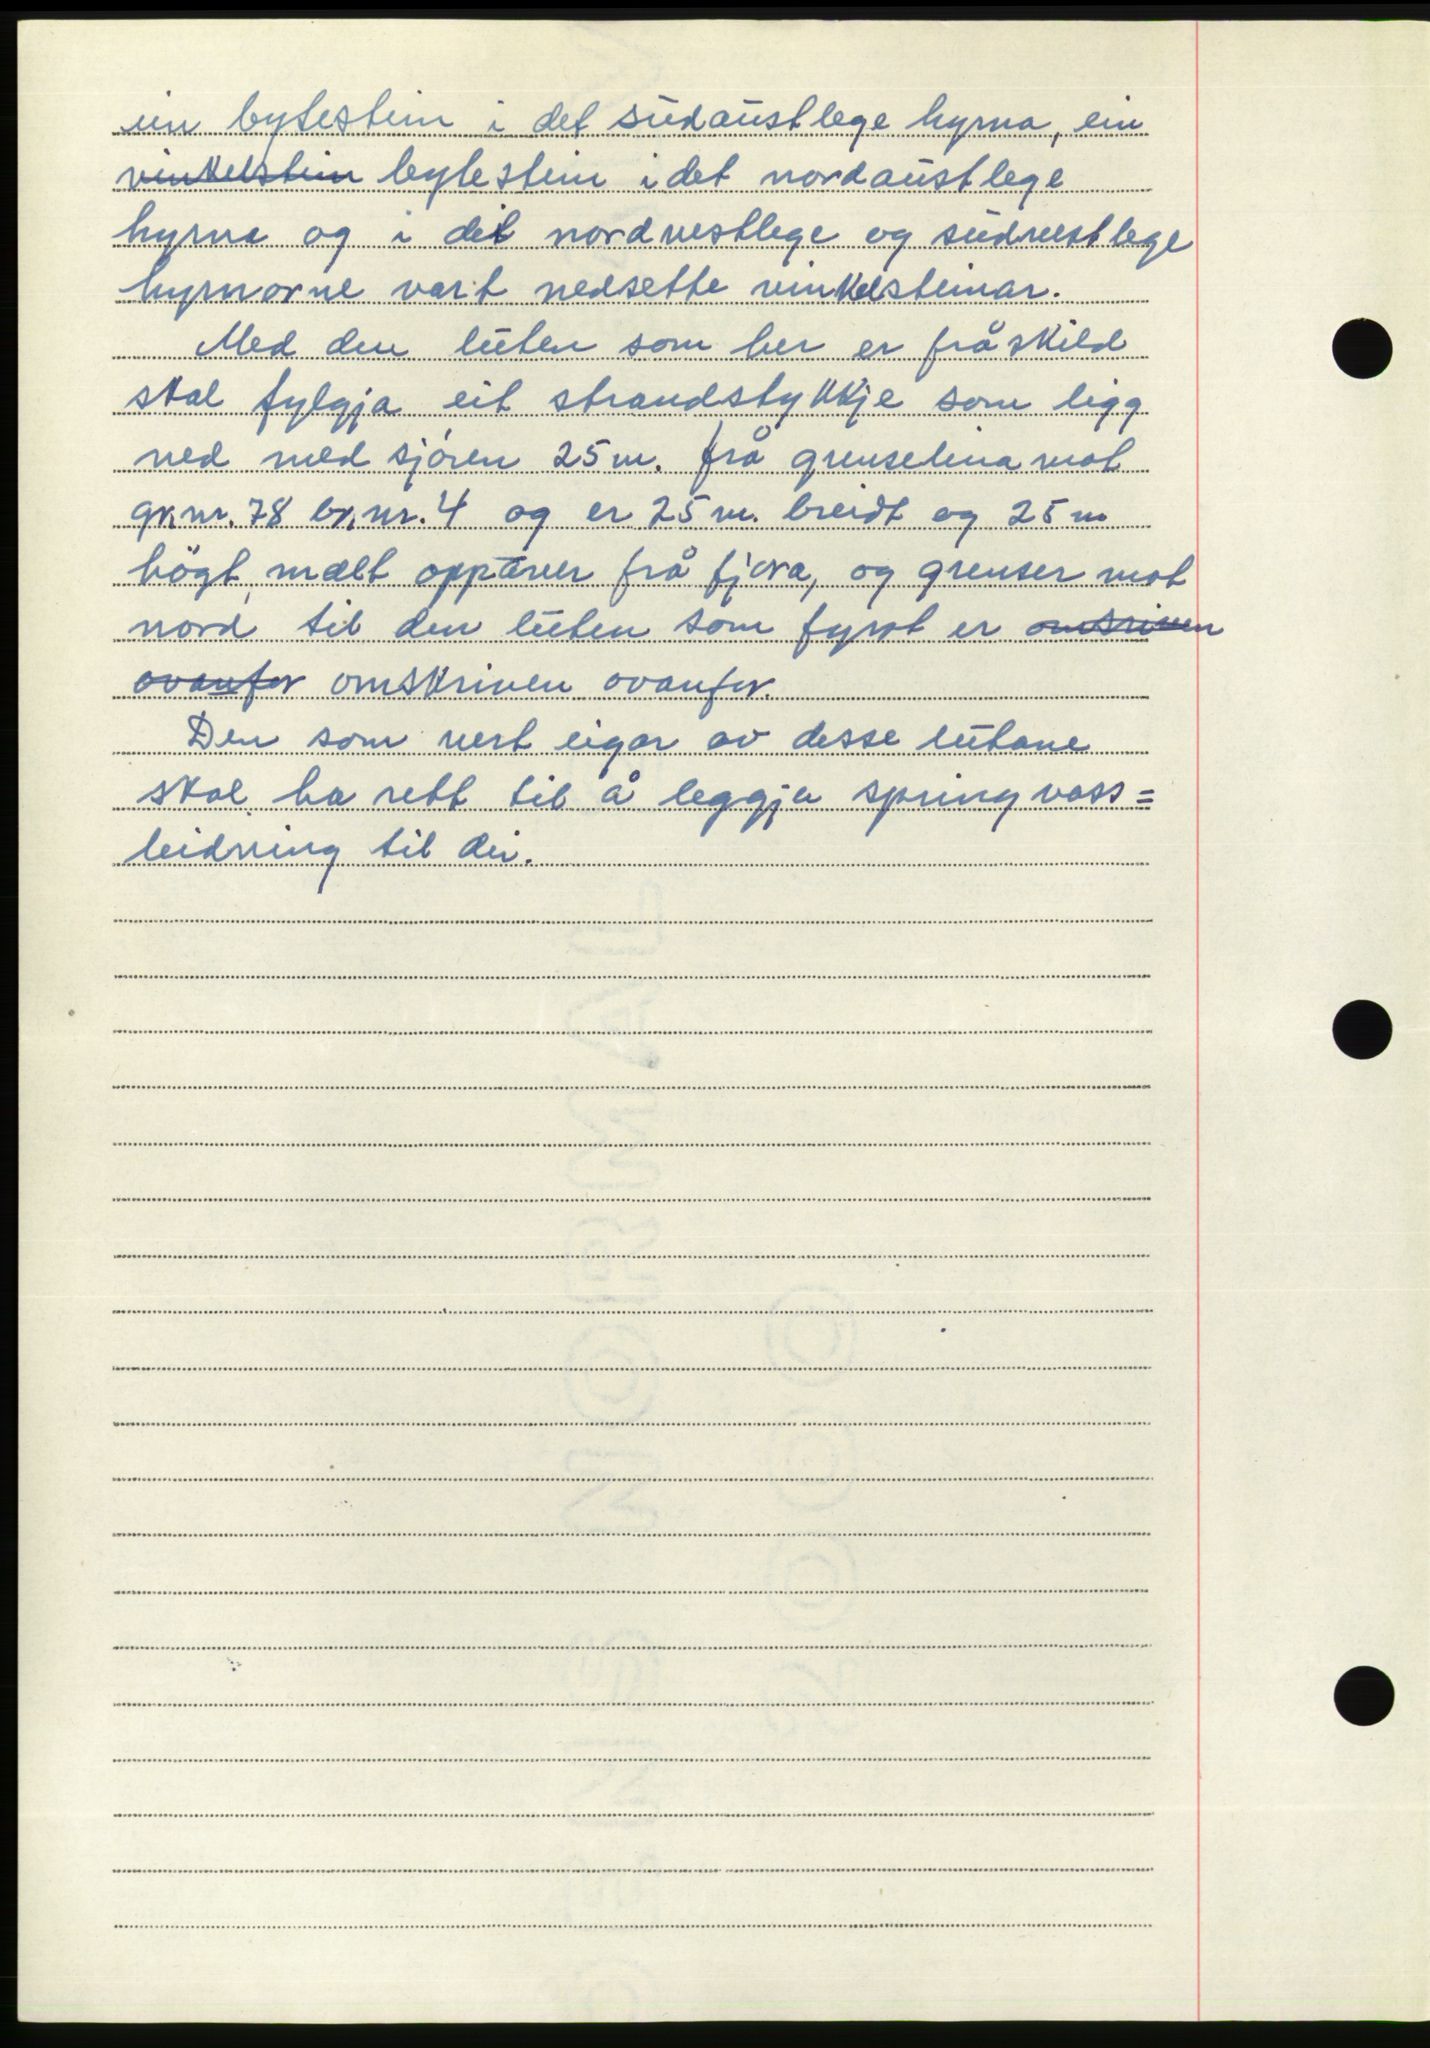 ein bytestein i det südaustlege hyrna, ein
vinkelstein bytestein i det nordaustlege
hyrna og i dei nordvestlege og südvestlege
hyrnorne vart nedsette vinkelsteinar.
Med den lüten som her er fråskild
skal fylgja eit strandstykkje som ligg
ned med sjøren 25 m. frå grenselina mot
gr.nr. 78 br.nr. 4 og er 25 m. breidt og 25 m
högt, mælt oppover frå fjøra, og grenser mot
nord til den lüten som fyrst er omsriven
ovanfor omskriven ovanfor.
Den som vert eigar av desse lütane
skal ha rett til å leggja springvass=
leidning til dei.